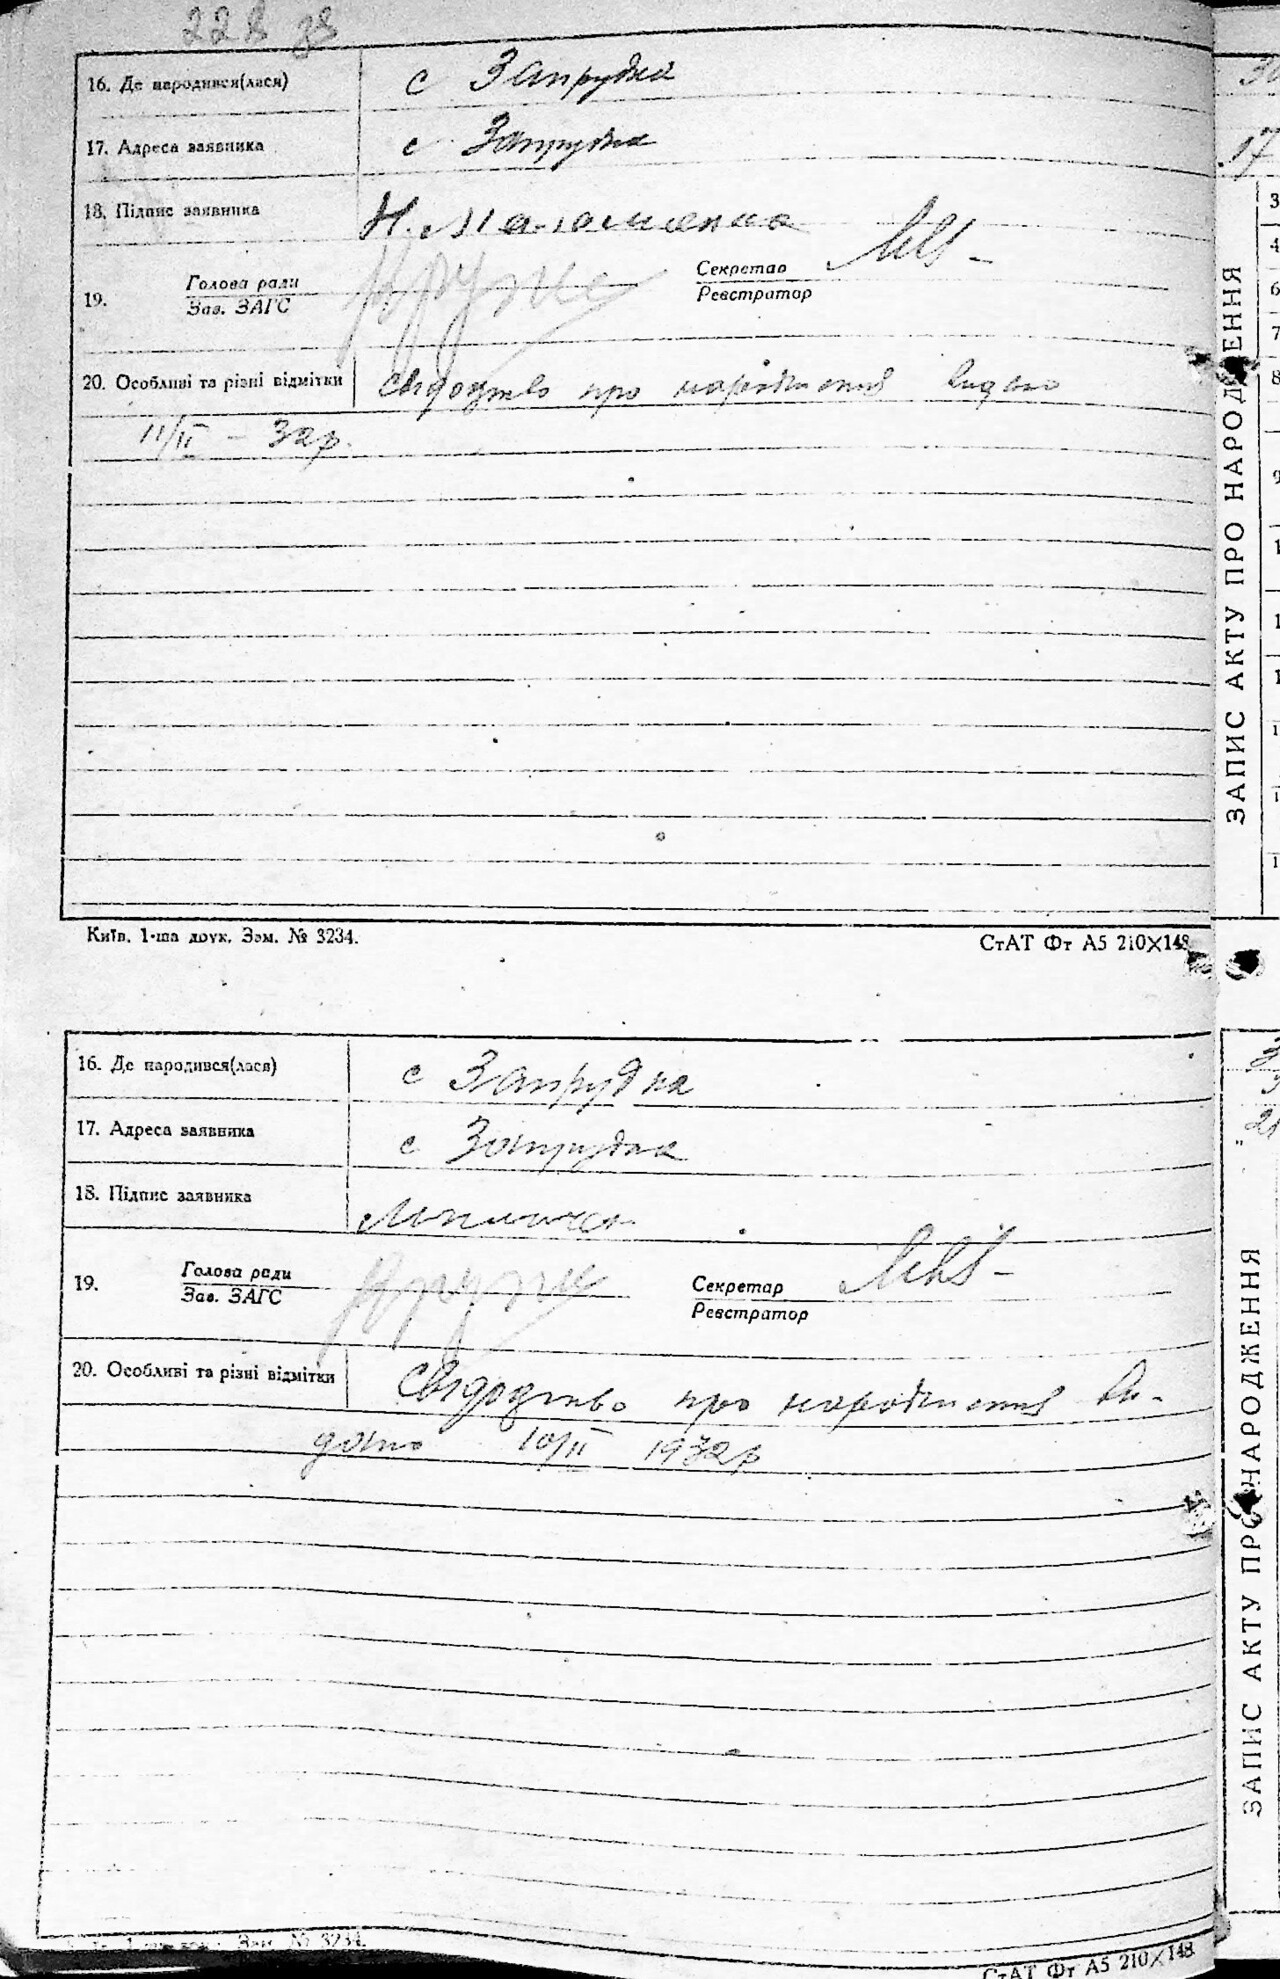 228 зв
16. Де народився(лася) с Запрудка
17. Адреса заявника с Запрудка
18. Підпис заявника Н.
19. Голова ради
Зав. ЗАГС
Секретар
Реєстратор
20. Особливі та різні відмітки свідоцтво про народження видано
11/II – 32 р.
Київ. 1-ша друк. Зам. № 3234.
СтАТ Фт А5 210×148
16. Де народився(лася) с Запрудка
17. Адреса заявника с Запрудка
18. Підпис заявника
19. Голова ради
Зав. ЗАГС
Секретар
Реєстратор
20. Особливі та різні відмітки Свідоцтво про народження ви-
дано 10/II 1932 р
Зам. № 3234.
СтАТ Фт А5 210×148
17
3
4
6
7
8
9
ЗАПИС АКТУ ПРО НАРОДЖЕННЯ
21
ЗАПИС АКТУ ПРО НАРОДЖЕННЯ